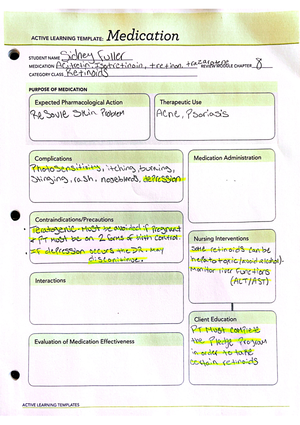 ACTIVE LEARNING TEMPLATE: Medication
STUDENT NAME Sidney Fuller
MEDICATION Acitretin, Isotretinoin, tretnon, trazarotene REVIEW MODULE CHAPTER 8
CATEGORY CLASS Retinoids
PURPOSE OF MEDICATION
Expected Pharmacological Action
Resolve Skin Problem
Therapeutic Use
Acne, Psoriasis
Complications
Photosensitivity, itching, burning,
Stinging, rash, nosebleeds, depression
Medication Administration
Contraindications/Precautions
Teratogenic. Must be avoided if pregnant
PT must be on 2 forms of birth control.
If depression occurs the DR. may
discontinue.
Nursing Interventions
Some retinoids can be
hepatotoxic (avoid alcohol).
Monitor liver functions
(ALT/AST)
Interactions
Client Education
PT Must complete
the Pledge Program
in order to take
certain retinoids
Evaluation of Medication Effectiveness
ACTIVE LEARNING TEMPLATES